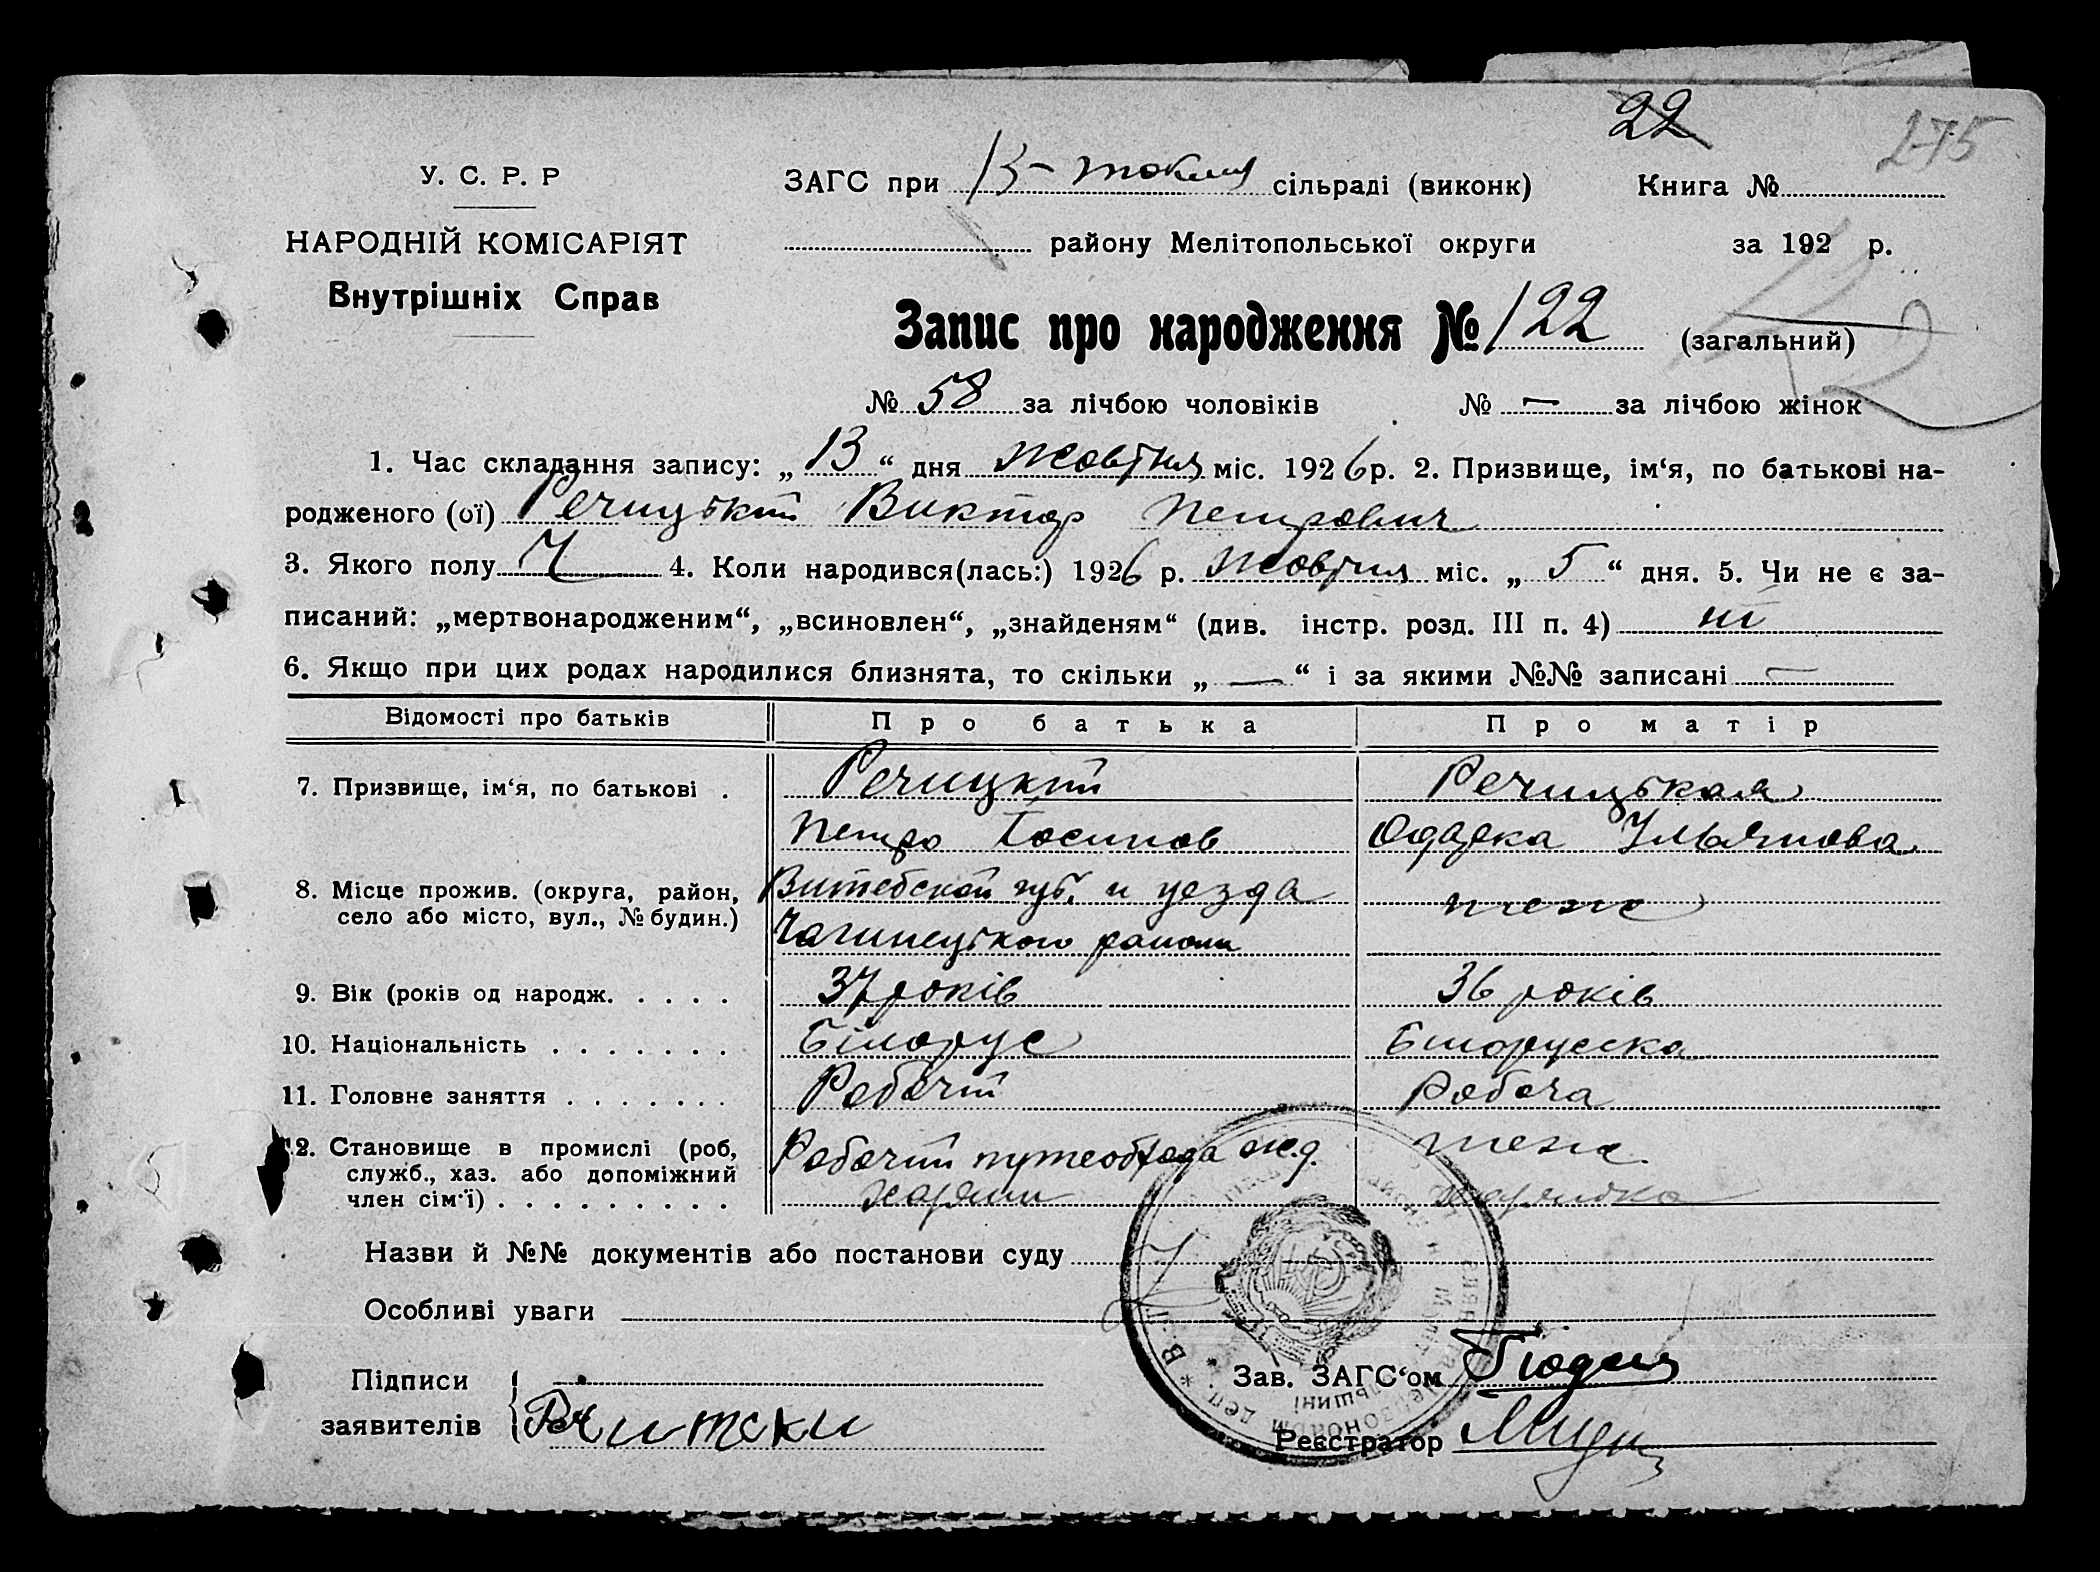 22
275
У. С. Р. Р
ЗАГС при В-Токмя сільраді (виконк) Книга №
НАРОДНІЙ КОМІСАРІЯТ
району Мелітопольської округи за 192 р.
Внутрішніх Справ
Запис про народження № 122 (загальний)
№ 58 за лічбою чоловіків № — за лічбою жінок
1. Час складання запису: „ 13 “ дня жовтня міс. 1926 р. 2. Призвище, ім‘я, по батькові на-
родженого (ої) Речицький Виктор Петрович
3. Якого полу Ч 4. Коли народився(лась:) 1926 р. жовтня міс. „ 5 “ дня. 5. Чи не є за-
писаний: „мертвонародженим“, „всиновлен“, „знайденям“ (див. інстр. розд. III п. 4) ні
6. Якщо при цих родах народилися близнята, то скільки „ — “ і за якими №№ записані —
Відомості про батьків Про батька Про матір
7. Призвище, ім‘я, по батькові . Речицкий Речицькая
Петро Иосипов Одарка Ульянова
8. Місце прожив. (округа, район, село або місто, вул., № будин.) Витебской губ. и уезда теже
района
9. Вік (років од народж. . . . . 37 років 36 років
10. Національність . . . . . . . Білорус Білоруска
11. Головне заняття . . . . . . . Робочий Робоча
12. Становище в промислі (роб, служб., хаз. або допоміжний член сім‘ї) . . . . . . . . . Робочий ж.д. теже
Назви й №№ документів або постанови суду
Особливі уваги
Підписи
заявителів Речитски
Зав. ЗАГС‘ом
Реєстратор